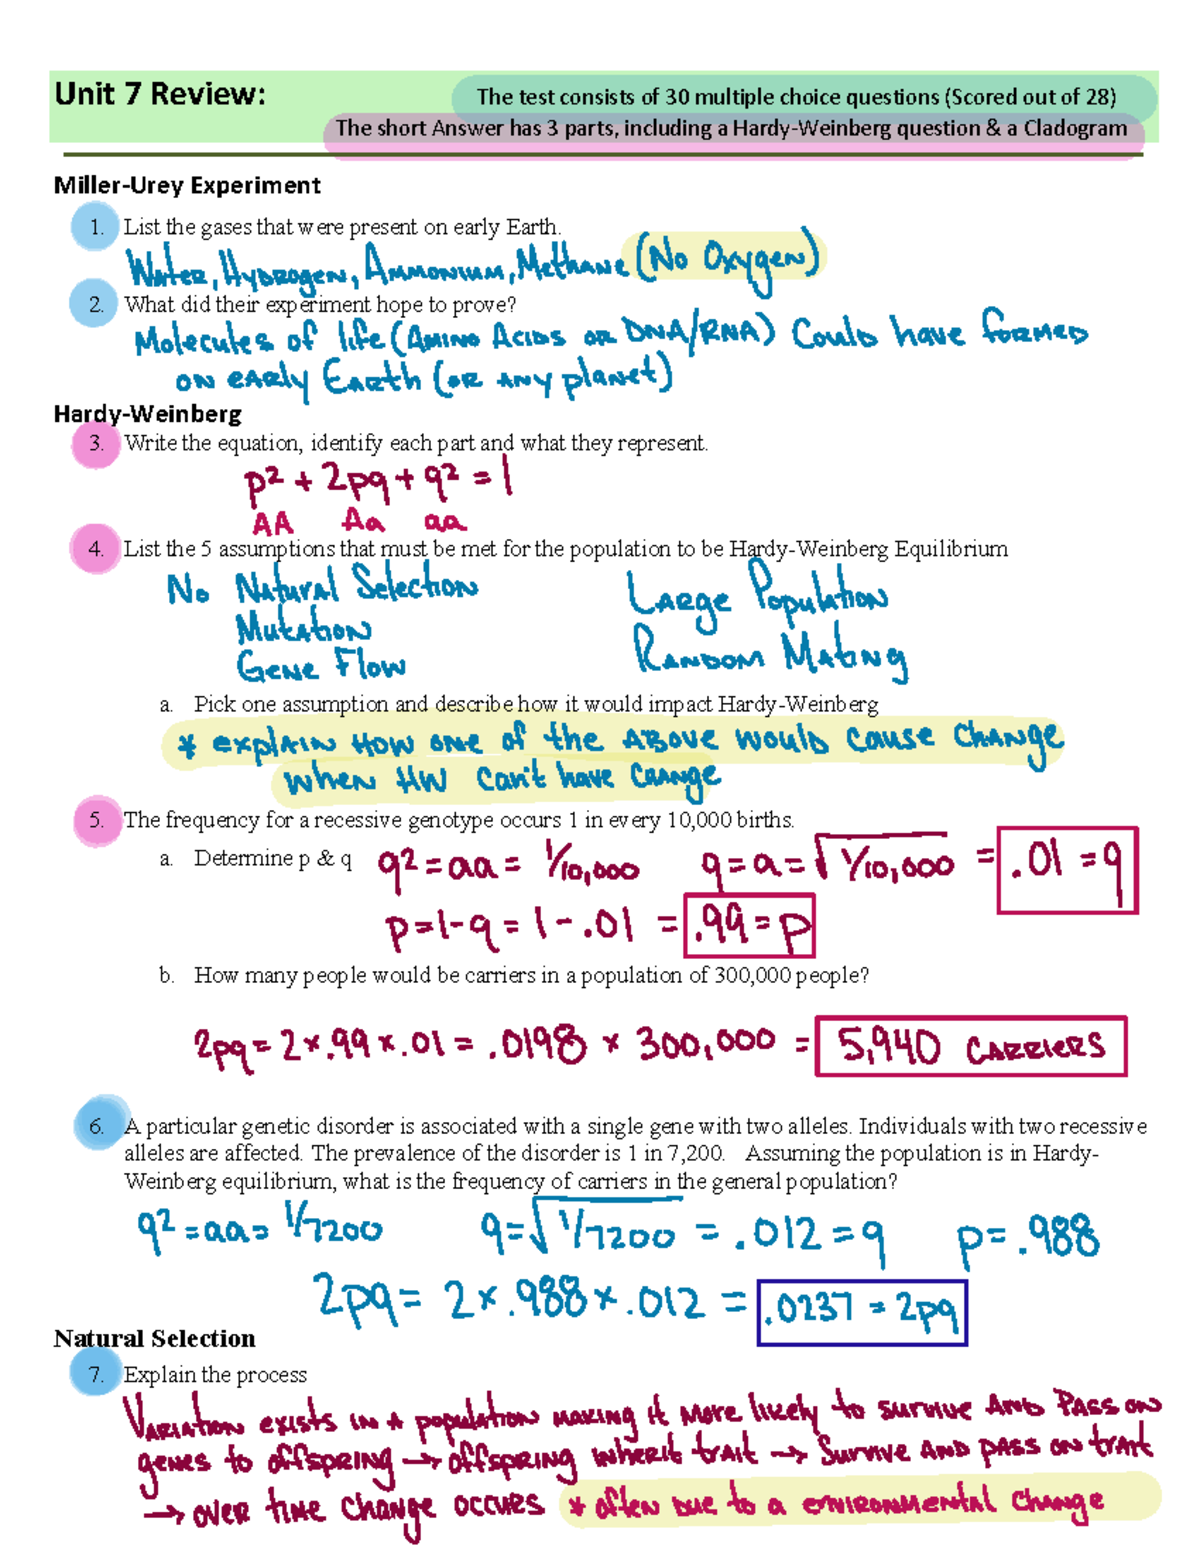 Unit 7 Review:
The test consists of 30 multiple choice questions (Scored out of 28)
The short Answer has 3 parts, including a Hardy-Weinberg question & a Cladogram
Miller-Urey Experiment
1. List the gases that were present on early Earth.
Water, Hydrogen, Ammonium, Methane (No Oxygen)
2. What did their experiment hope to prove?
Molecules of life (Amino Acids or DNA/RNA) could have formed
on early Earth (or any planet)
Hardy-Weinberg
3. Write the equation, identify each part and what they represent.
p² + 2pq + q² = 1
AA Aa aa
4. List the 5 assumptions that must be met for the population to be Hardy-Weinberg Equilibrium
No Natural Selection Large Population
Mutation Random Mating
Gene Flow
a. Pick one assumption and describe how it would impact Hardy-Weinberg
* explain how one of the above would cause change
when HW can't have change
5. The frequency for a recessive genotype occurs 1 in every 10,000 births.
a. Determine p & q q² = aa = 1/10,000 q = a = √1/10,000 = .01 = q
p = 1 - q = 1 - .01 = .99 = p
b. How many people would be carriers in a population of 300,000 people?
2pq = 2 × .99 × .01 = .0198 × 300,000 = 5,940 carriers
6. A particular genetic disorder is associated with a single gene with two alleles. Individuals with two recessive
alleles are affected. The prevalence of the disorder is 1 in 7,200. Assuming the population is in Hardy-
Weinberg equilibrium, what is the frequency of carriers in the general population?
q² = aa = 1/7200 q = √1/7200 = .012 = q p = .988
2pq = 2 × .988 × .012 = .0237 = 2pq
Natural Selection
7. Explain the process
Variation exists in a population making it more likely to survive and pass on
genes to offspring → offspring inherit trait → survive and pass on trait
→ over time change occurs * often due to a environmental change